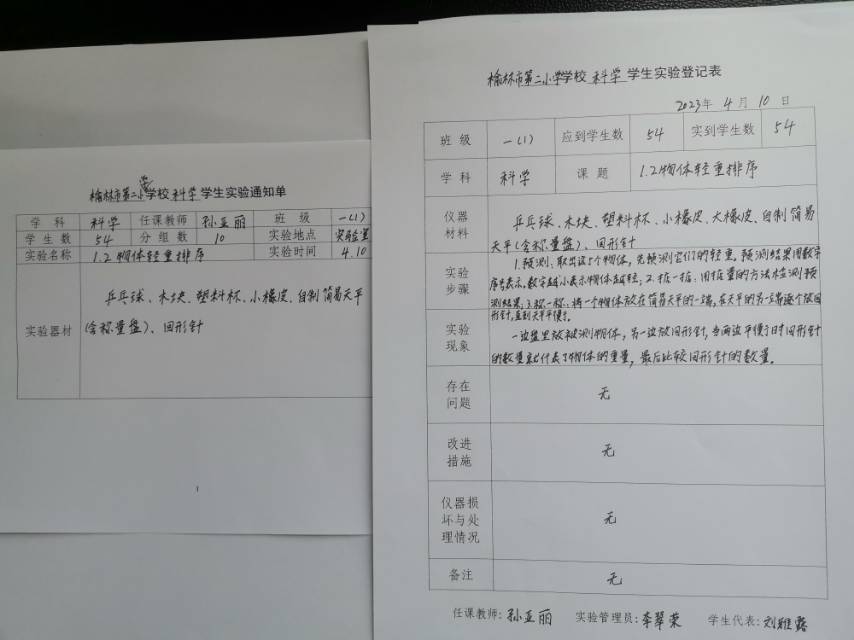 榆林市第二小学学校 科学 学生实验通知单
学科 科学 任课教师 孙亚丽 班级 一(1)
学生数 54 分组数 10 实验地点 实验室
实验名称 1.2物体轻重排序 实验时间 4.10
实验器材
乒乓球、木块、塑料杯、小橡皮、自制简易天平
(含称量盘)、回形针
1
榆林市第二小学学校 科学 学生实验登记表
2023年 4月 10日
班级 一(1) 应到学生数 54 实到学生数 54
学科 科学 课题 1.2物体轻重排序
仪器
材料
乒乓球、木块、塑料杯、小橡皮、大橡皮、自制简易
天平(含称量盘)、回形针
实验
步骤
1.预测、取出这5个物体,先预测它们的轻重。预测结果用数字
序号表示,数字越小表示物体越轻;2.掂一掂:用掂量的方法检测预
测结果;3.称一称:将一个物体放在简易天平的一端,在天平的另一端逐个放回
形针,直到天平平衡。
实验
现象
一边盘里放被测物体,另一边放回形针,当两边平衡了时回形针
的数量就代表了物体的重量,最后比较回形针的数量。
存在
问题
无
改进
措施
无
仪器损
坏与处
理情况
无
备注
无
任课教师:孙亚丽 实验管理员:李翠荣 学生代表:刘雅露